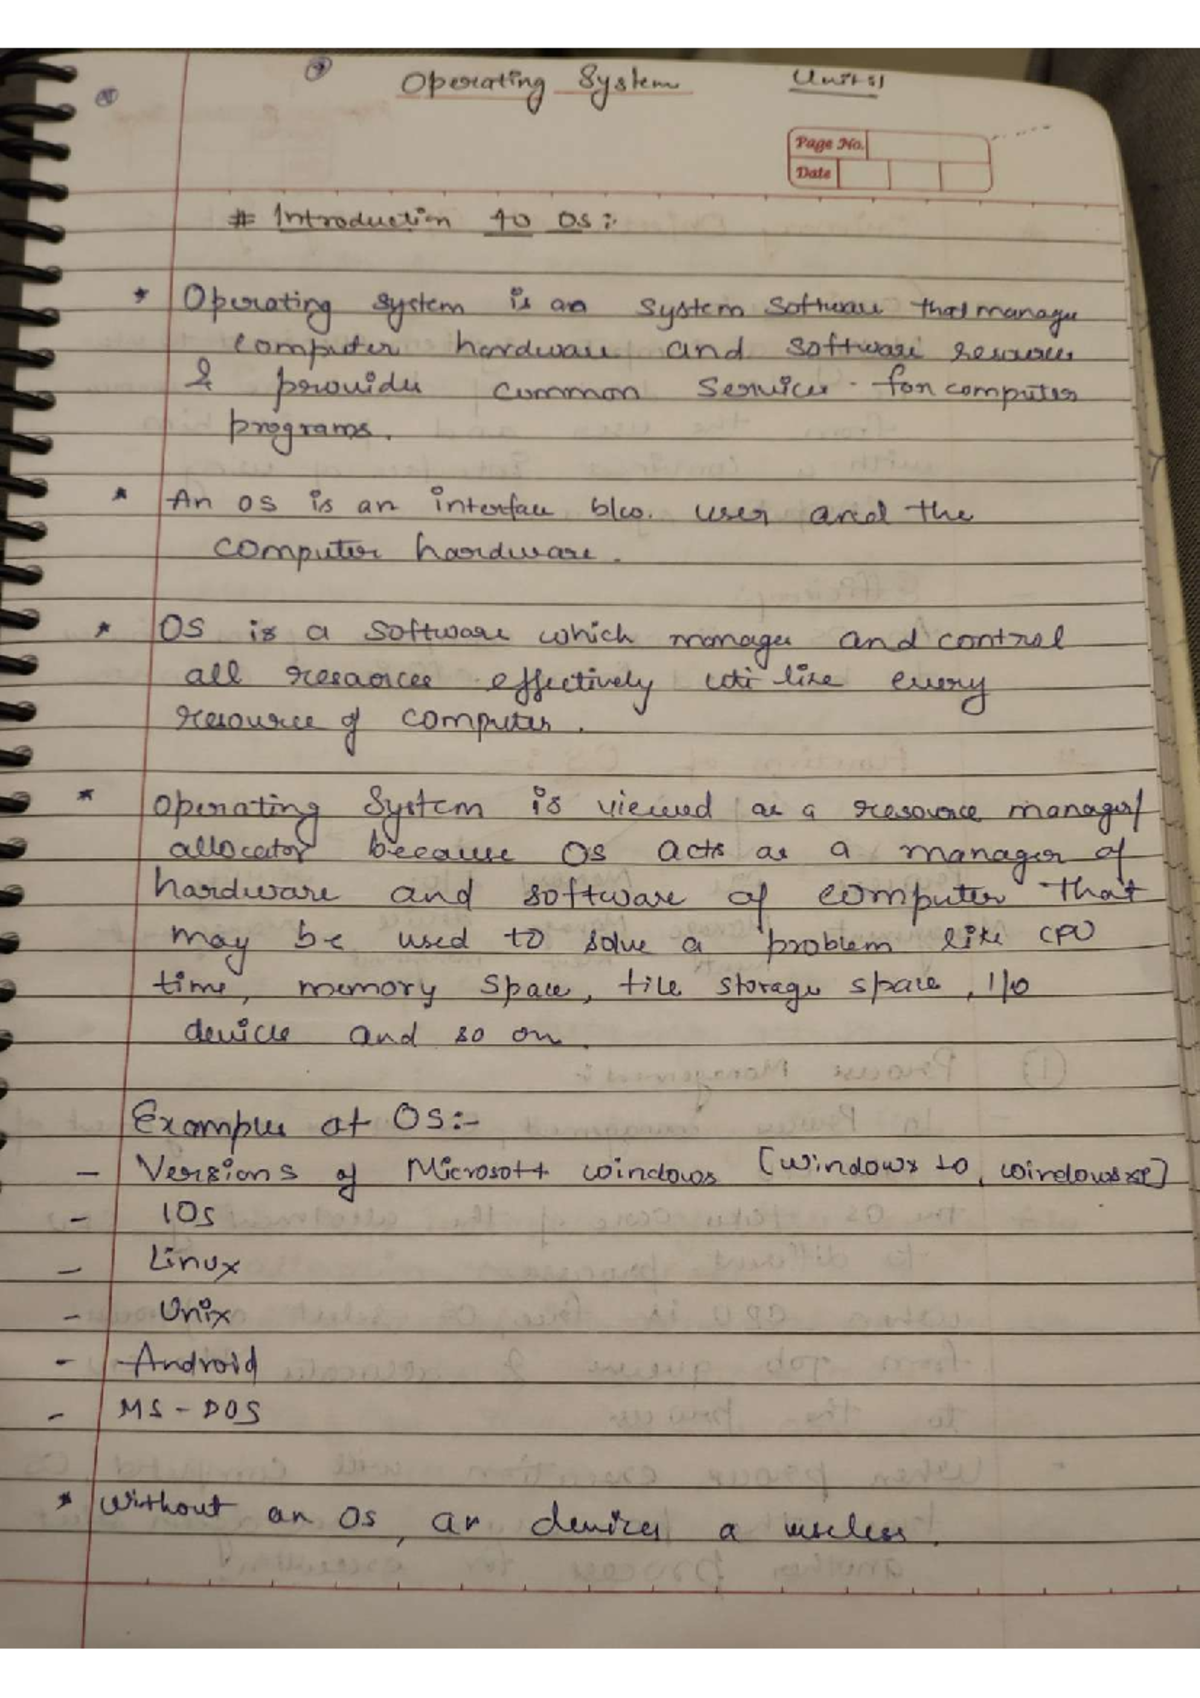 Operating System Unit:1)
Page No.
Date
# Introduction to OS:-
* Operating system is an system software that manages
computer hardware and software resources
& provides common services for computer
programs.
* An OS is an interface b/w. user and the
computer hardware.
* OS is a software which manages and control
all resaorces effectively utilise every
resource of computer.
* Operating System is viewed as a resource manager/
allocator because OS acts as a manager of
hardware and software of computer that
may be used to solve a problem like CPU
time, memory space, file storage space, I/O
device and so on.
Examples of OS:-
- Versions of Microsoft windows [windows 10, windows xp]
- IOS
- Linux
- Unix
- Android
- MS-DOS
* Without an OS, an devices a useless.